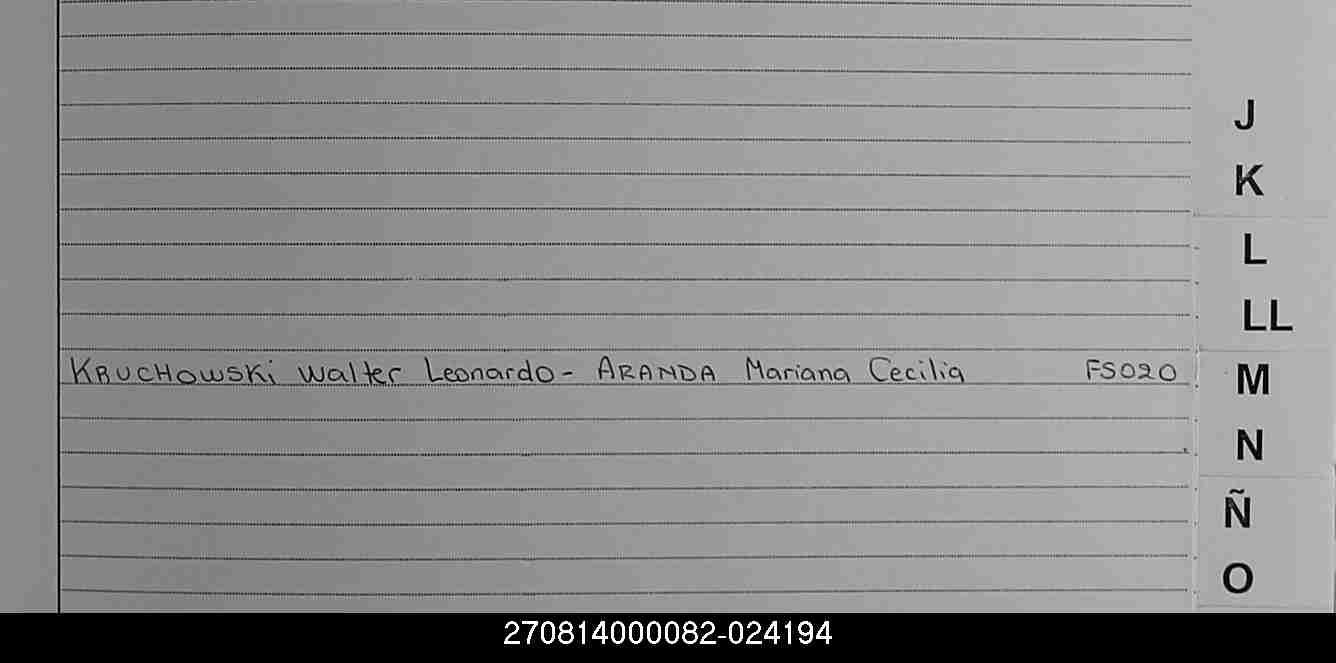 J
K
L
LL
KRUCHOWSKi Walter Leonardo - ARANDA Mariana Cecilia FS020
M
N
Ñ
O
270814000082-024194